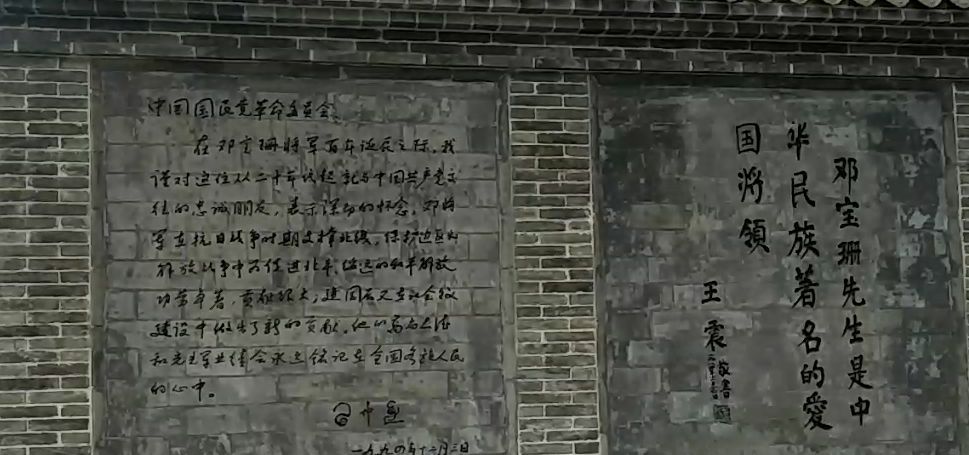 中国国民党革命委员会：
在邓宝珊将军百年诞辰之际，我
谨对这位从二十年代起就与中国共产党交
往的忠诚朋友，表示深切的怀念。邓将
军在抗日战争时期支撑北线，保护边区为
解放战争中又促进北平、绥远的和平解放
功劳卓著，贡献很大，建国后又在社会主义
建设中做出了新的贡献。他的高尚
和光辉业绩会永远铭记在全国各族人民
的心中。
习仲勋
一九九四年十二月三日
邓宝珊先生是中
华民族著名的爱
国将领
王震
敬書